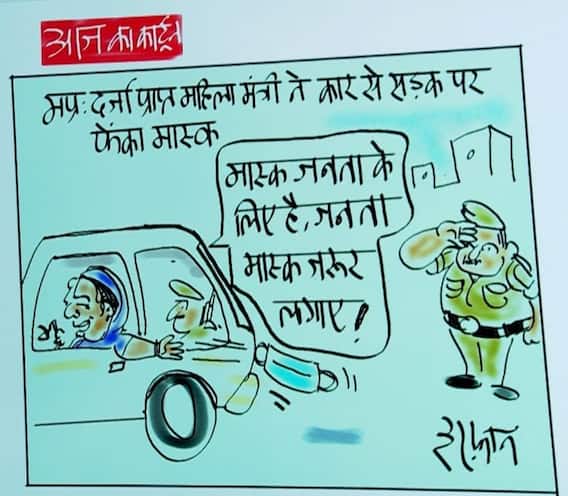 आज का कार्टून
मप्र: दर्जा प्राप्त महिला मंत्री ने कार से सड़क पर
फेंका मास्क
मास्क जनता के
लिए है, जनता
मास्क जरूर
लगाए!
इरफ़ान